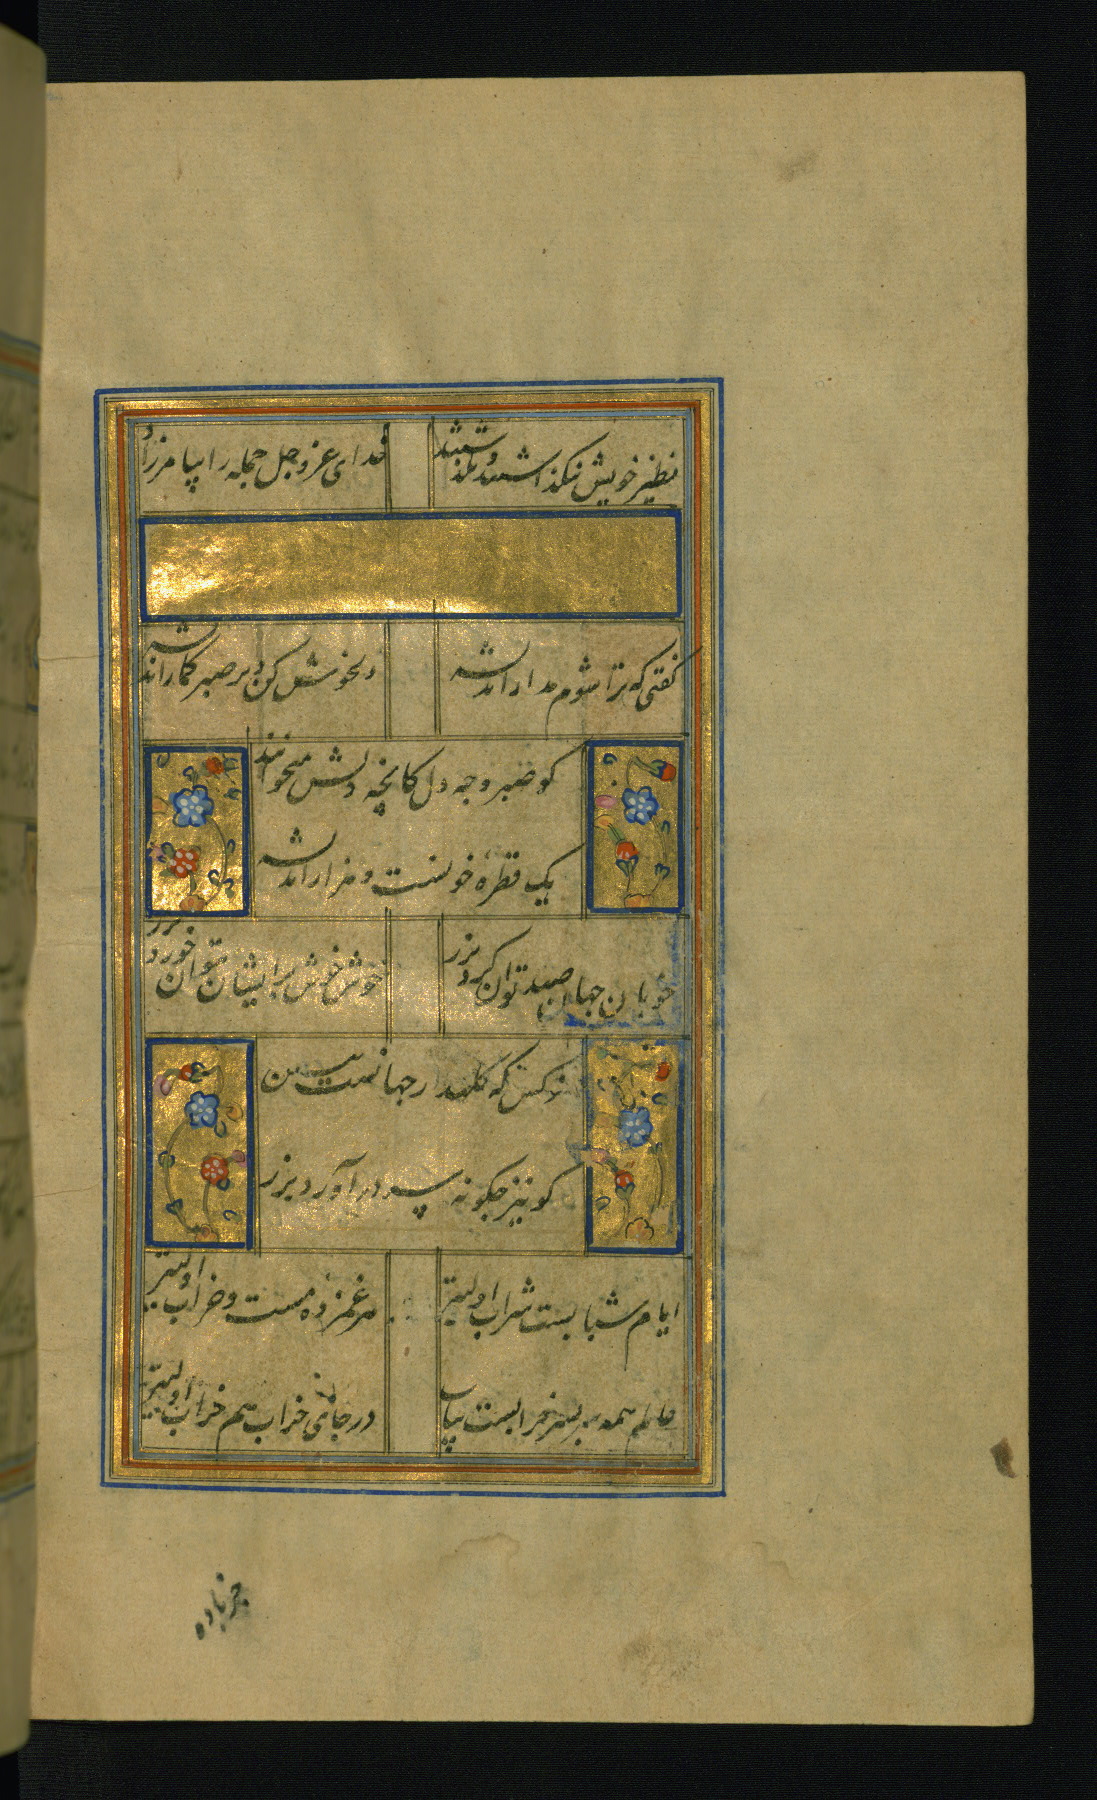 نظیر خویش نبگذاشتند و بگذشتند
خدای عز و جل جمله را بیامرزاد
گفتی که ترا شوم مدار اندیشه
دلخوش کن و بر صبر گمار اندیشه
کو صبر و چه دل کانچه دلش میخوانند
یک قطره خونست و هزار اندیشه
خوبان جهان صید توان کرد بزر
خوش خوش بر ایشان بتوان خورد بزر
نرکس که کلهدار جهانست ببین
کو نیز چکونه سر درآورد بزر
ایام شبابست شراب اولیتر
هر غمزده مست و خراب اولیتر
عالم همه سر بسر خرابست یباب
در جای خراب هم خراب اولیتر